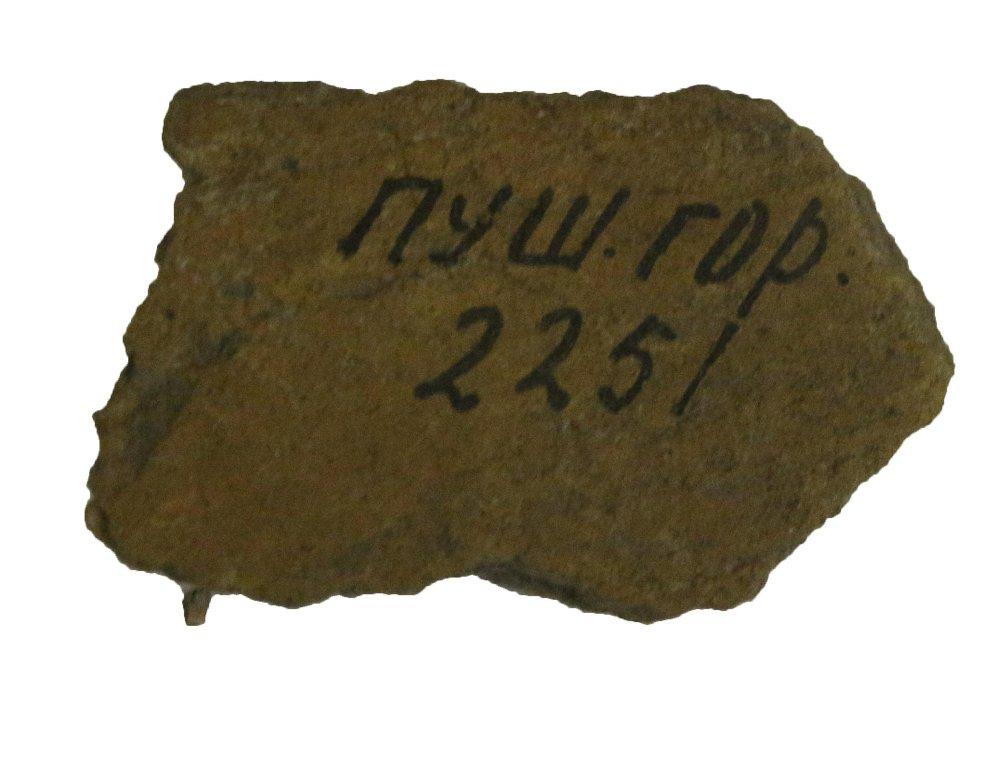 ПУШ. ГОР.
2251